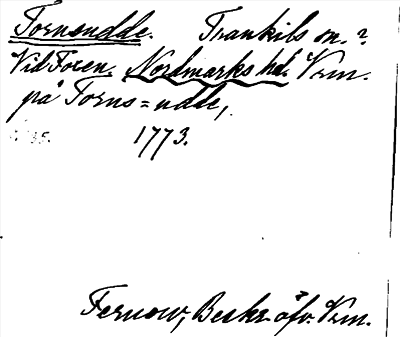 Tornsudde. Trankils sn.?
Vid Foxen. Nordmarks hd. Vrm.
på Torns=udde,
1773.
Fernow, Beskr. öfv. Vrm.